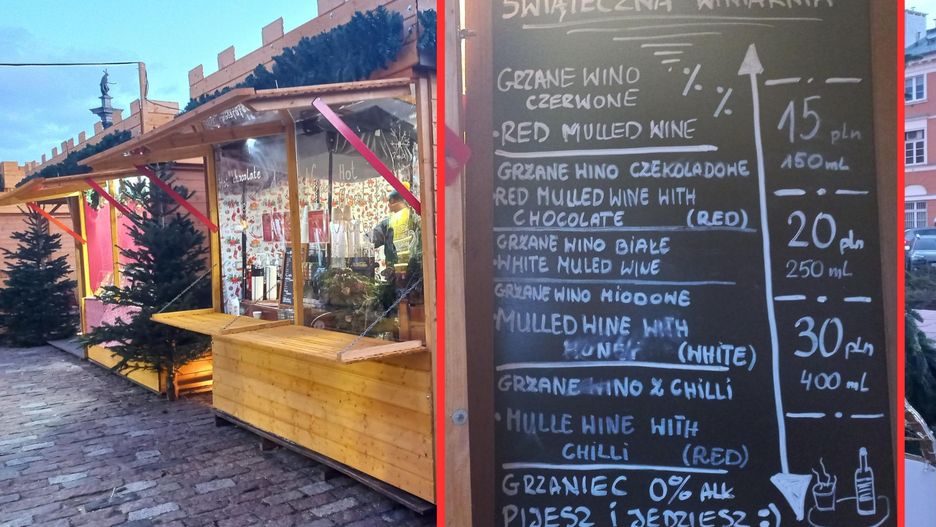 Chocolate
Hot
ŚWIĄTECZNA WINIARNIA
GRZANE WINO
CZERWONE
% %
• RED MULLED WINE
GRZANE WINO CZEKOLADOWE
• RED MULLED WINE WITH
CHOCOLATE (RED)
GRZANE WINO BIAŁE
• WHITE MULED WINE
GRZANE WINO MIODOWE
• MULLED WINE WITH
HONEY (WHITE)
GRZANE WINO Z CHILLI
• MULLE WINE WITH
CHILLI (RED)
GRZANIEC 0% ALK
PIJESZ I JEDZIESZ :)
15 pln
150 mL
20 pln
250 mL
30 pln
400 mL